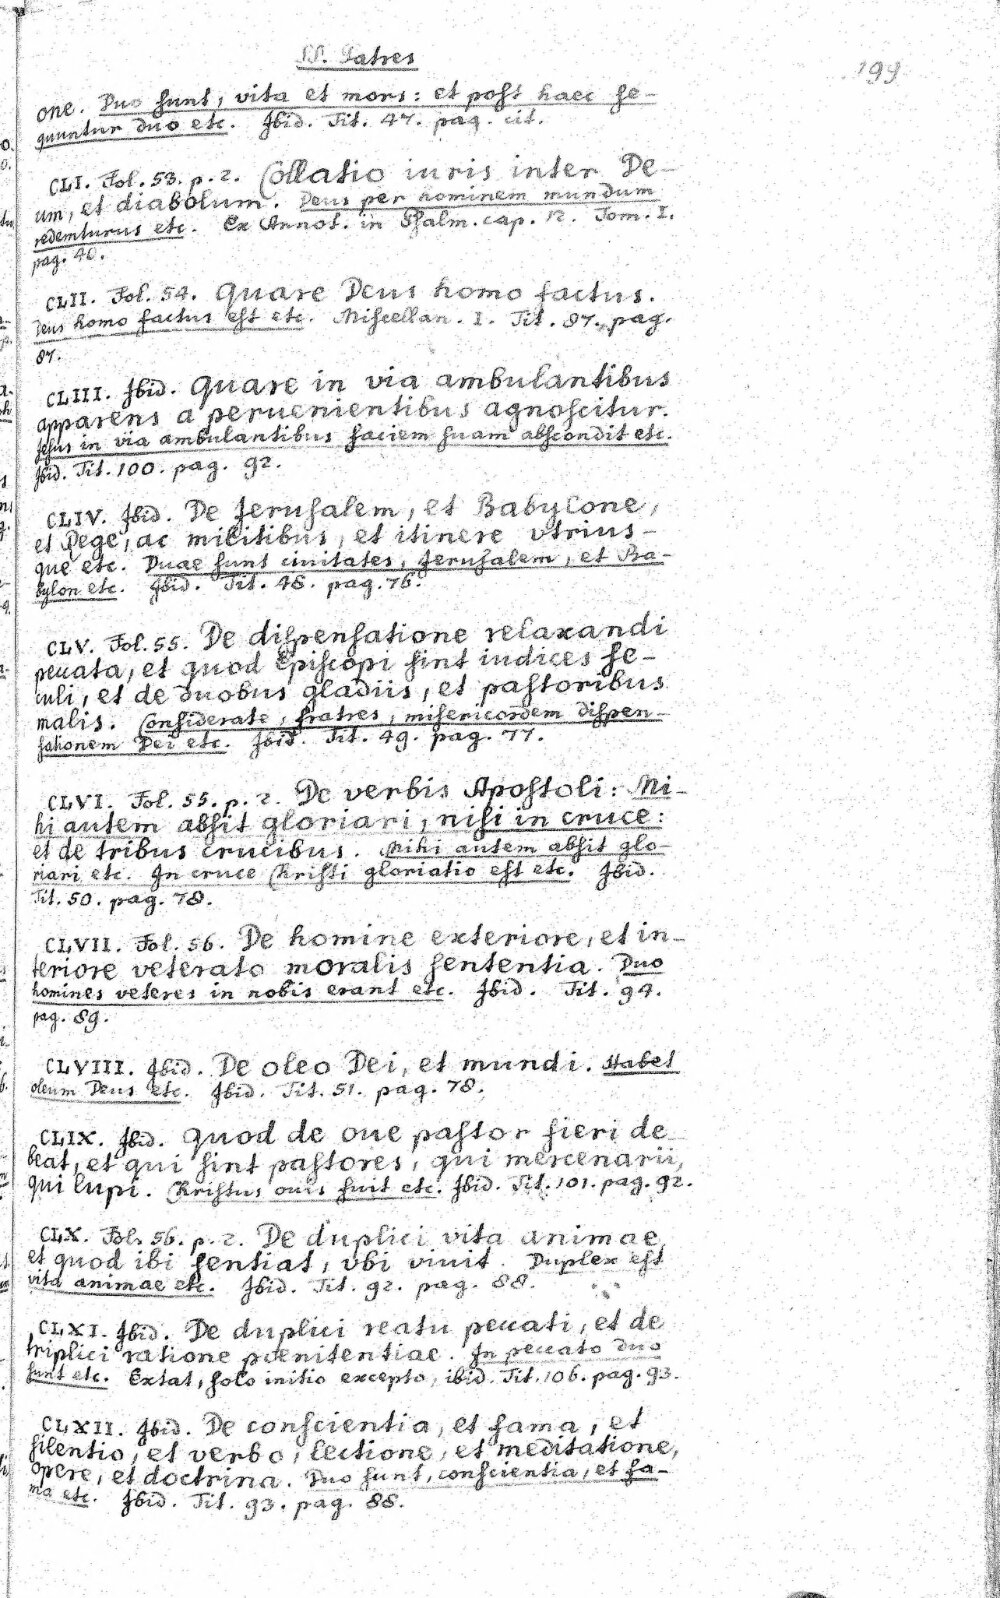 SS. Patres
199
one. Duo sunt, vita et mors: et post haec se-
quuntur duo etc. Ibid. Tit. 47. pag. cit.
CLI. Fol. 53. p. 2. Collatio iuris inter De-
um, et diabolum. Deus per hominem mundum
redemturus etc. Ex Annot. in Psalm. cap. 12. Tom. I.
pag. 40.
CLII. Fol. 54. Quare Deus homo factus.
Deus homo factus est etc. Miscellan. I. Tit. 87. pag.
87.
CLIII. Ibid. Quare in via ambulantibus
apparens a peruenientibus agnoscitur.
Jesus in via ambulantibus faciem suam abscondit etc.
Ibid. Tit. 100. pag. 92.
CLIV. Ibid. De Jerusalem, et Babylone,
et Rege, ac militibus, et itinere vtrius-
que etc. Duae sunt ciuitates, Jerusalem, et Ba-
bylon etc. Ibid. Tit. 48. pag. 76.
CLV. Fol. 55. De dispensatione relaxandi
peccata, et quod Episcopi sint iudices se-
culi, et de duobus gladiis, et pastoribus
malis. Considerate, fratres, misericordem dispen-
sationem Dei etc. Ibid. Tit. 49. pag. 77.
CLVI. Fol. 55. p. 2. De verbis Apostoli: Mi-
hi autem absit gloriari, nisi in cruce:
et de tribus crucibus. Mihi autem absit glo-
riari etc. In cruce Christi gloriatio est etc. Ibid.
Tit. 50. pag. 78.
CLVII. Fol. 56. De homine exteriore, et in-
teriore veterato moralis sententia. Duo
homines veteres in nobis erant etc. Ibid. Tit. 94.
pag. 89.
CLVIII. Ibid. De oleo Dei, et mundi. Habet
oleum Deus etc. Ibid. Tit. 51. pag. 78.
CLIX. Ibid. Quod de oue pastor fieri de-
beat, et qui sint pastores, qui mercenarii,
qui lupi. Christus ouis fuit etc. Ibid. Tit. 101. pag. 92.
CLX. Fol. 56. p. 2. De duplici vita animae,
et quod ibi sentiat, vbi viuit. Duplex est
vita animae etc. Ibid. Tit. 92. pag. 88.
CLXI. Ibid. De duplici reatu peccati, et de
triplici ratione poenitentiae. In peccato duo
sunt etc. Extat, solo initio excepto, ibid. Tit. 106. pag. 93.
CLXII. Ibid. De conscientia, et fama, et
silentio, et verbo, lectione, et meditatione,
opere, et doctrina. Duo sunt, conscientia, et fa-
ma etc. Ibid. Tit. 93. pag. 88.